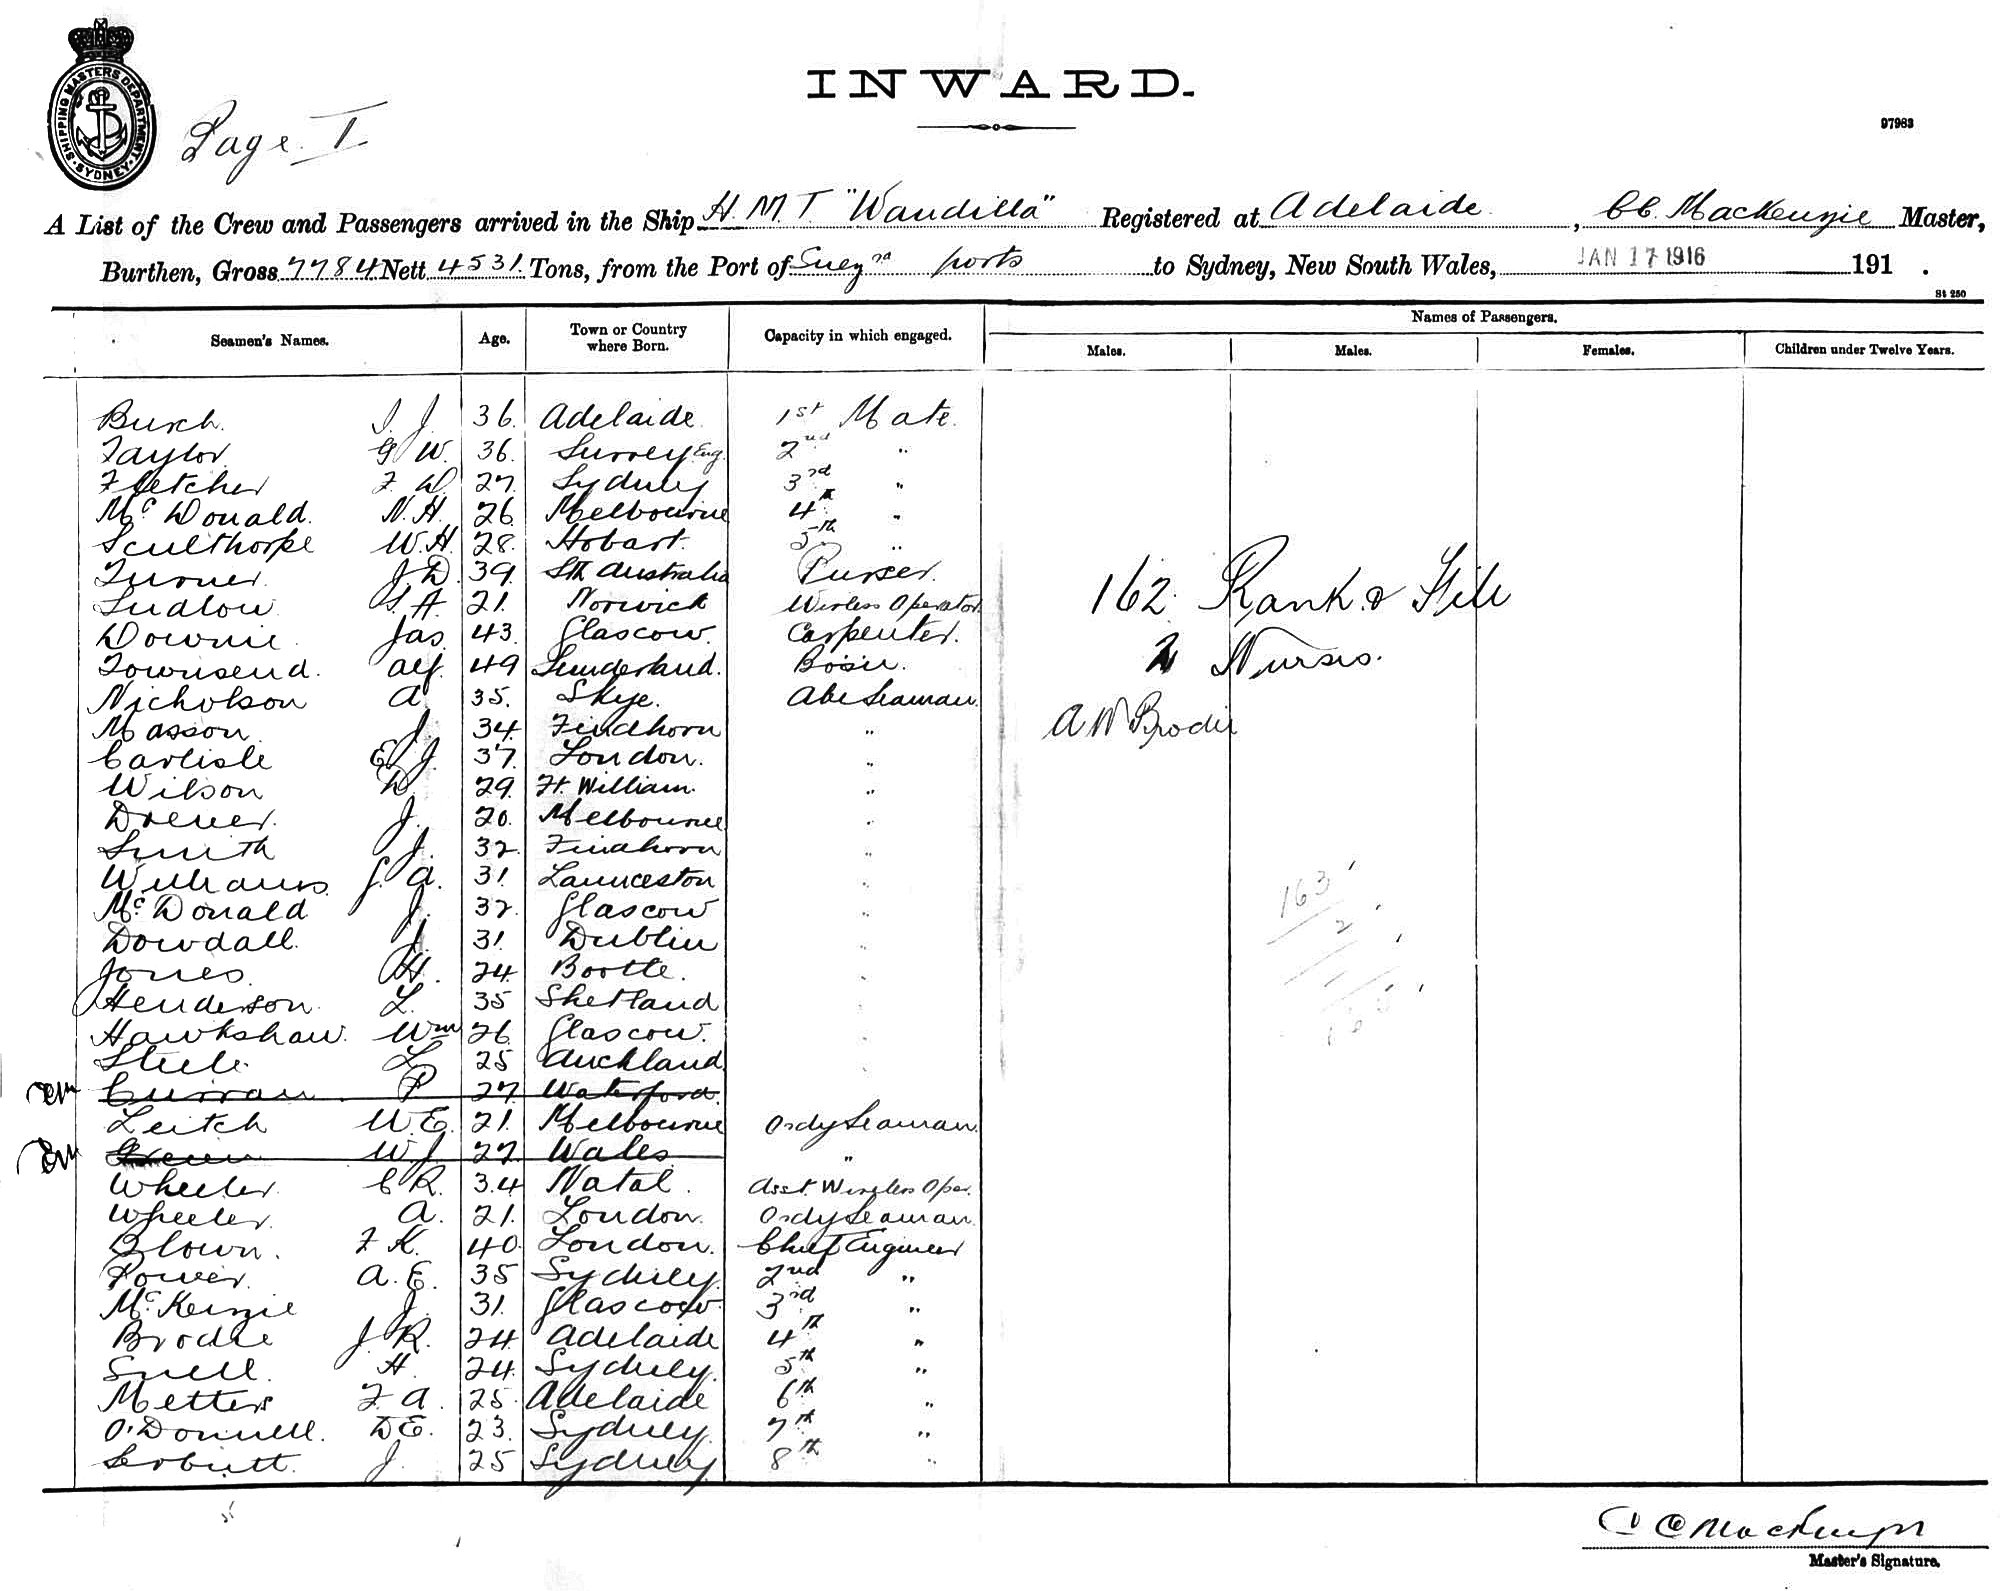 SHIPPING MASTERS DEPARTMENT
SYDNEY
Page I
INWARD.
97963
A List of the Crew and Passengers arrived in the Ship H.M.T. "Wandilla" Registered at Adelaide, CC. MacKenzie Master,
Burthen, Gross 7784 Nett 4531 Tons, from the Port of Suez via ports to Sydney, New South Wales, JAN 17 1916 191 .
St 250
Seamen's Names. Age. Town or Country where Born. Capacity in which engaged. Names of Passengers.
Males. Males. Females. Children under Twelve Years.
Burch. J. J. 36. Adelaide. 1st Mate.
Taylor G W. 36. Surrey Eng. 2nd "
Fletcher F. W. 27. Sydney 3rd "
McDonald. N.H. 26 Melbourne 4th "
Sculthorpe W.H. 28. Hobart. 5th "
Turner. J.D. 39. Sth Australia Purser.
Ludlow A. 21. Norwich Wirless Operator.
Downie Jas 43. Glascow. Carpenter.
Townsend. Alf. 49 Sunderland. Bosn.
Nicholson A 35. Skye. Abe Seaman.
Masson J. 34. Findhorn "
Carlisle E J. 37. London. "
Wilson D. 29. Ft. William. "
Drever. J. 20. Melbourne "
Smith J. 32 Findhorn "
Williams. J. A. 31. Launceston "
McDonald J. 32. Glascow "
Dowdall. J. 31. Dublin "
Jones. H. 24. Bootle. "
Henderson. L. 35 Shetland "
Hawkshaw. Wm 26 Glascow. "
Steele. L 25 Auckland "
Curran P 27. Waterford.
Leitch W.E. 21. Melbourne Ordy Seaman.
W J. 27. Wales "
Wheeler C R. 34 Natal. Asst. Wireless Oper.
Wheeler. A. 21. London. Ordy Seaman
Blown. F K. 40. London. Chief Engineer
Power. A. E. 35 Sydney. 2nd "
McKenzie J. 31. Glascow. 3rd "
Brodie J. R. 24. Adelaide 4th "
Snell. H. 24. Sydney. 5th "
Metters F. A. 25. Adelaide 6th "
O'Donnell. D E. 23. Sydney. 7th "
Serbutt. J. 25 Sydney 8th "
162. Rank & File
2 Nurses.
A W Brodie
163
2
C C MacKenzie
Master's Signature.